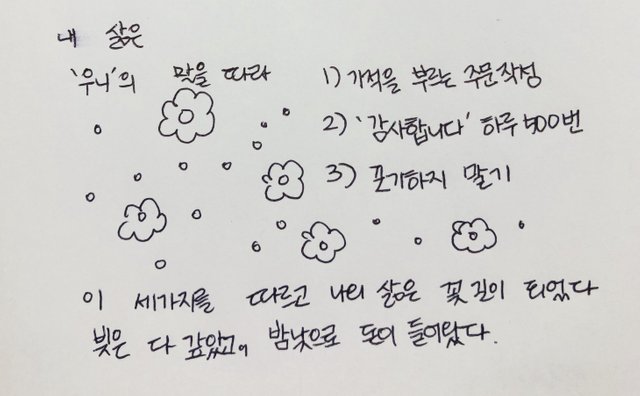 내 삶은
'우니'의 말을 따라
1) 기적을 부르는 주문작성
2) '감사합니다' 하루 500번
3) 포기하지 말기
이 세가지를 따르고 나의 삶은 꽃길이 되었다
빚은 다 갚았고, 밤낮으로 돈이 들어왔다.